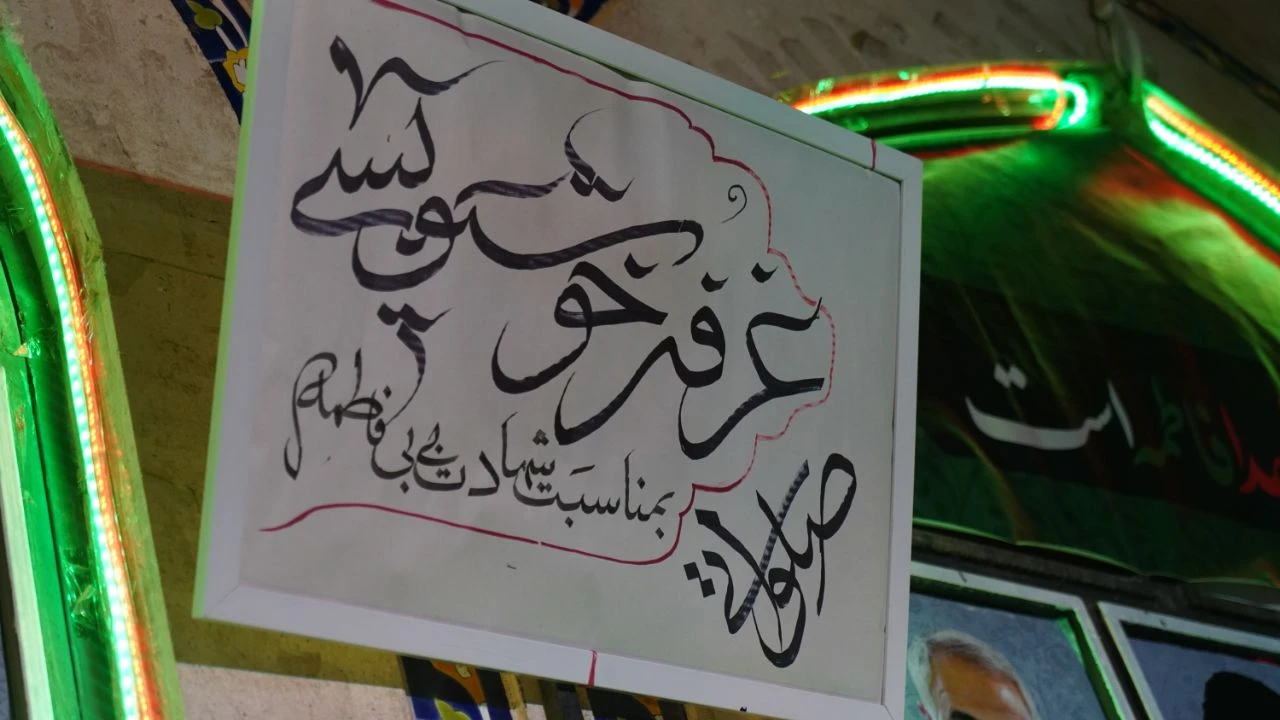 غرفه خوشنویسی
بمناسبت شهادت بی بی فاطمه
صلواتی
فاطمه است